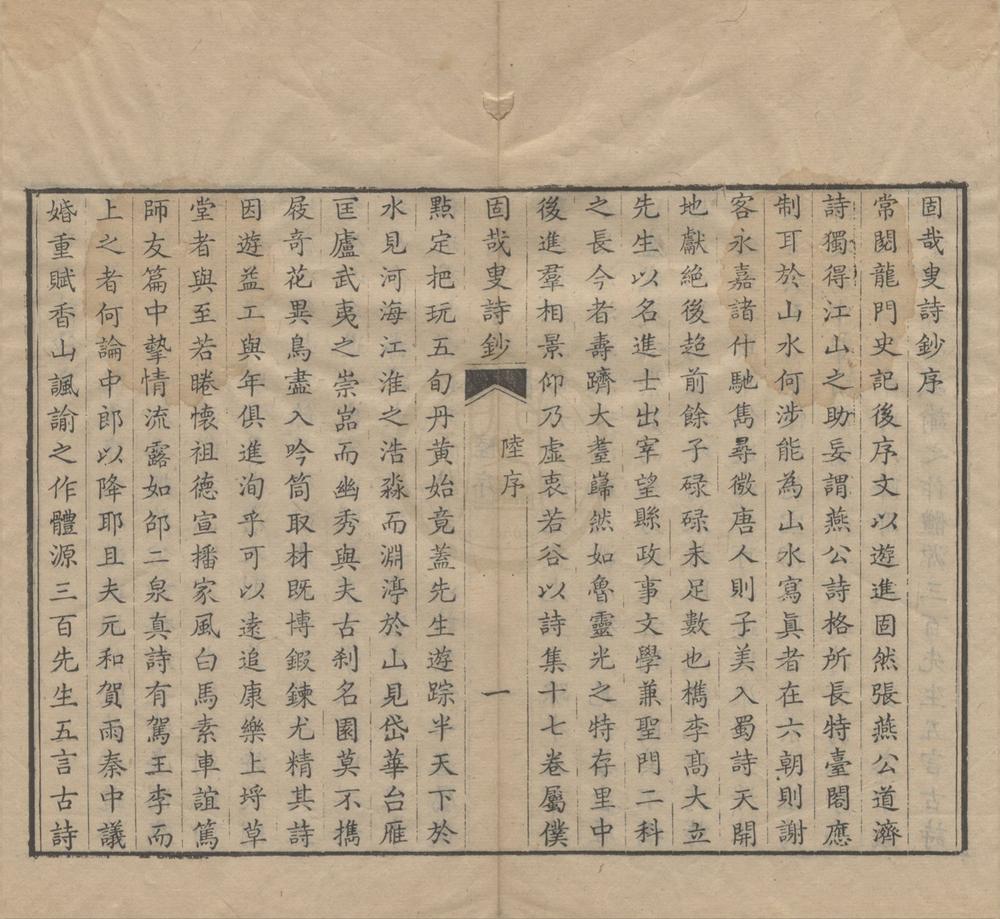 固哉叟詩鈔序
常閱龍門史記後序文以遊進固然張燕公道濟
詩獨得江山之助妄謂燕公詩格所長特臺閣應
制耳於山水何涉能為山水寫眞者在六朝則謝
客永嘉諸什馳雋尋微唐人則子美入蜀詩天開
地獻絕後超前餘子碌碌未足數也檇李髙大立
先生以名進士出宰望縣政事文學兼聖門二科
之長今者壽躋大耋巋然如魯靈光之特存里中
後進羣相景仰乃虛衷若谷以詩集十七卷屬僕
固哉叟詩鈔
陸序
一
點定把玩五旬丹黃始竟蓋先生遊踪半天下於
水見河海江淮之浩淼而淵渟於山見岱華台雁
匡廬武夷之崇嵓而幽秀與夫古刹名園莫不攜
屐奇花異鳥盡入吟筒取材既博鍛鍊尤精其詩
因遊益工與年俱進洵乎可以遠追康樂上埒草
堂者與至若睠懷祖德宣播家風白馬素車誼篤
師友篇中摯情流露如邵二泉真詩有駕王李而
上之者何論中郎以降耶且夫元和賀雨秦中議
婚重賦香山諷諭之作體源三百先生五言古詩